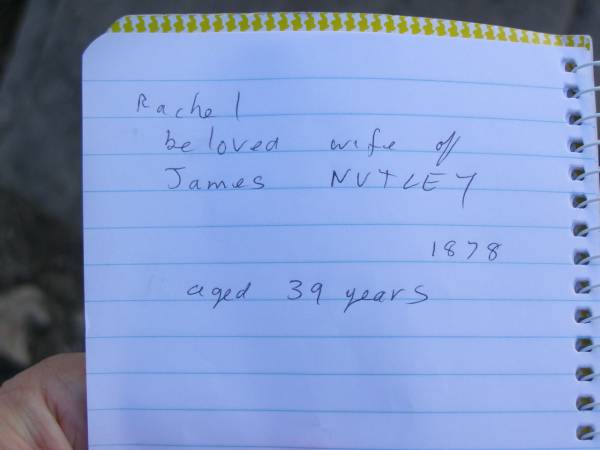 Rachel
beloved wife of
James NUTLEY
1878
aged 39 years